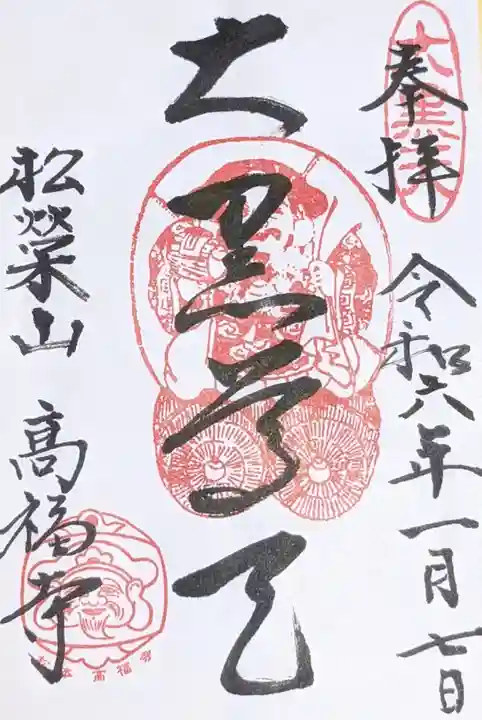 奉拝
大黒天
令和六年一月七日
大黒尊天
松榮山 高福寺
高福寺